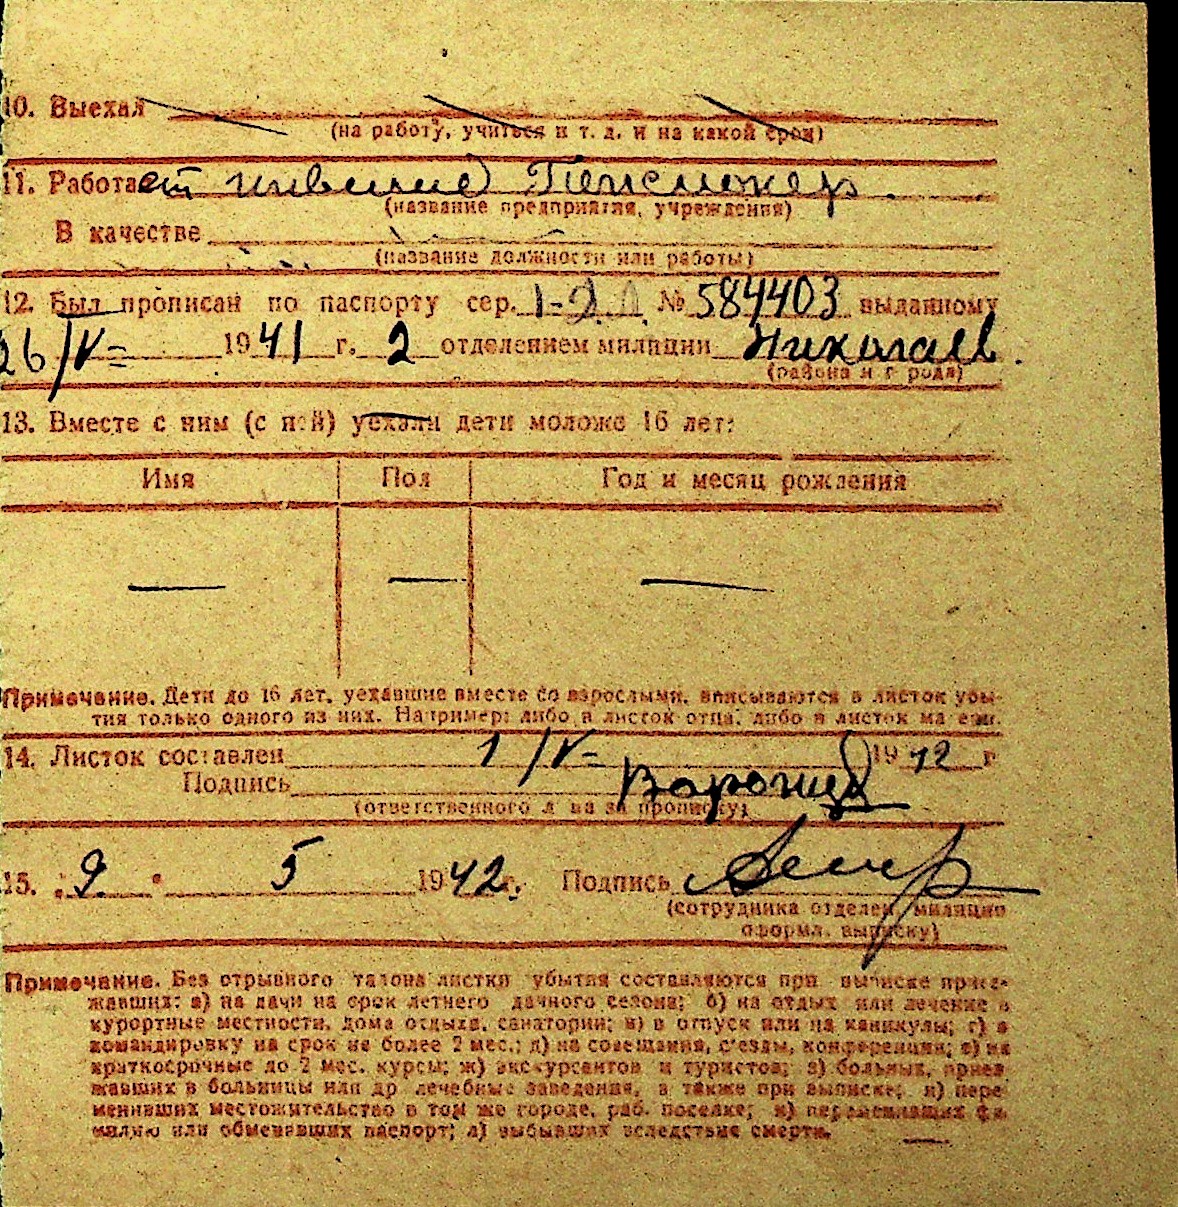 10. Выехал
(на работу, учиться и т. д. и на какой срок)
11. Работает Пенсионер
(название предприятия, учреждения)
В качестве
(название должности или работы)
12. Был прописан по паспорту сер. № 584403 выданному
26/IV 1941 г. 2 отделением милиции Николаев
(района и города)
13. Вместе с ним (с ней) уехали дети моложе 16 лет:
Имя Пол Год и месяц рождения
— — —
Примечание. Дети до 16 лет, уехавшие вместе со взрослыми, вписываются в листок убы-
тия только одного из них. Например: либо в листок отца, либо в листок матери.
14. Листок составлен 1/V- 1942 г
Подпись
(ответственного л на за прописку)
15. „9 " 5 1942 г. Подпись
(сотрудника отделен. милиции
оформл. выписку)
Примечание. Без отрывного талона листки убытия составляются при выписке приез-
жавших: а) на дачи на срок летнего дачного сезона; б) на отдых или лечение в
курортные местности, дома отдыха, санатории; в) в отпуск или на каникулы; г) в
командировку на срок не более 2 мес.; д) на совещания, с'езды, конференции; е) на
краткосрочные до 2 мес. курсы; ж) экскурсантов и туристов; з) больных, приез
жавших в больницы или др лечебные заведения, а также при выписке; и) пере
менивших местожительство в том же городе, раб. поселке; к) переменивших фа
милию или обменявших паспорт; л) выбывших вследствие смерти.